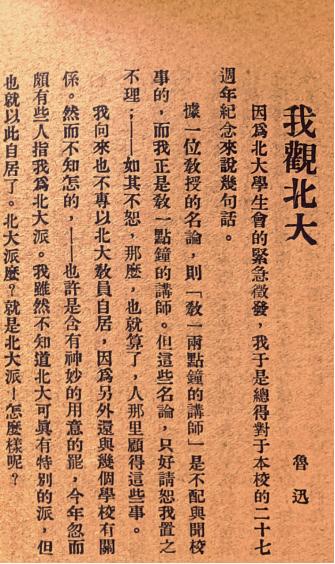 我觀北大
魯迅
因爲北大學生會的緊急徵發，我于是總得對于本校的二十七
週年紀念來說幾句話。
據一位敎授的名論，則「敎一兩點鐘的講師」是不配與聞校
事的，而我正是敎一點鐘的講師。但這些名論，只好請恕我置之
不理；——如其不恕，那麽，也就算了，人那里顧得這些事。
我向來也不專以北大敎員自居，因爲另外還與幾個學校有關
係。然而不知怎的，——也許是含有神妙的用意的罷，今年忽而
頗有些人指我爲北大派。我雖然不知道北大可眞有特別的派，但
也就以此自居了。北大派麽？就是北大派！怎麽樣呢？